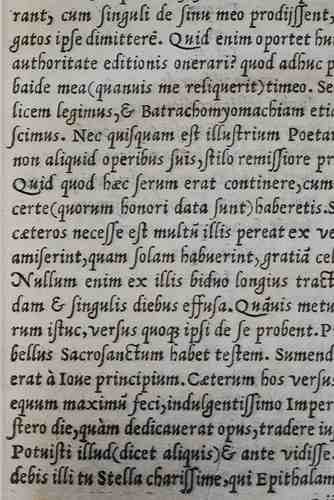 rant, cum ſinguli de ſinu meo prodijſſent,
gatos ipſe dimitterē. Quid enim oportet
authoritate editionis onerari? quod adhuc p
baide mea(quanuis me reliquerit)timeo. Se
licem legimus,& Batrachomyomachiam etia
ſcimus. Nec quiſquam eſt illuſtrium Poetar
non aliquid operibus ſuis,ſtilo remiſſiore pr
Quid quod hæc ſerum erat continere,cum
certe(quorum honori data ſunt)haberetis.S
cæteros neceſſe eſt multũ illis pereat ex ve
amiſerint,quam ſolam habuerint,gratiã cel
Nullum enim ex illis biduo longius tract
dam & ſingulis diebus effuſa.Quãuis metu
rum iſtuc,verſus quoqꝫ ipſi de ſe probent. P
bellus Sacroſanctum habet teſtem. Sumend
erat à Ioue principium.Cæterum hos verſus
equum maximũ feci,indulgentiſſimo Imper
ſtero die,quàm dedicauerat opus,tradere iu
Potuiſti illud(dicet aliquis)& ante vidiſſe.
debis illi tu Stella chariſſime,qui Epithalam